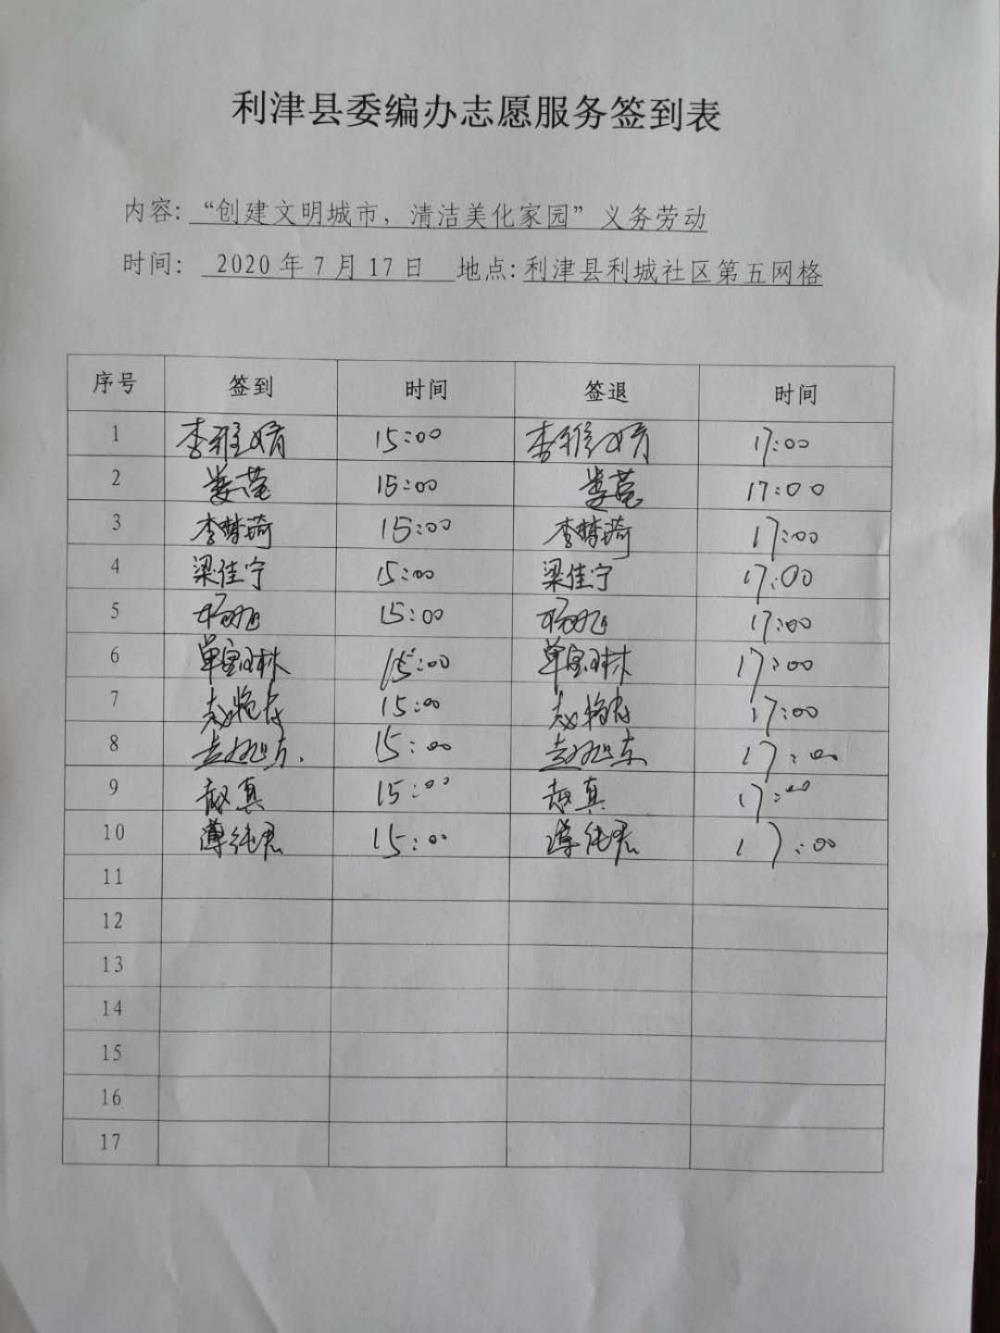 利津县委编办志愿服务签到表
内容: “创建文明城市，清洁美化家园”义务劳动
时间: 2020年7月17日 地点: 利津县利城社区第五网格
序号 签到 时间 签退 时间
1 李雅婧 15:00 李雅婧 17:00
2 15:00 17:00
3 李梦琦 15:00 李梦琦 17:00
4 梁佳宁 15:00 梁佳宁 17:00
5 杨旭 15:00 杨旭 17:00
6 单宝琳 15:00 单宝琳 17:00
7 15:00 17:00
8 赵旭东 15:00 赵旭东 17:00
9 赵真 15:00 赵真 17:00
10 15:00 17:00
11
12
13
14
15
16
17